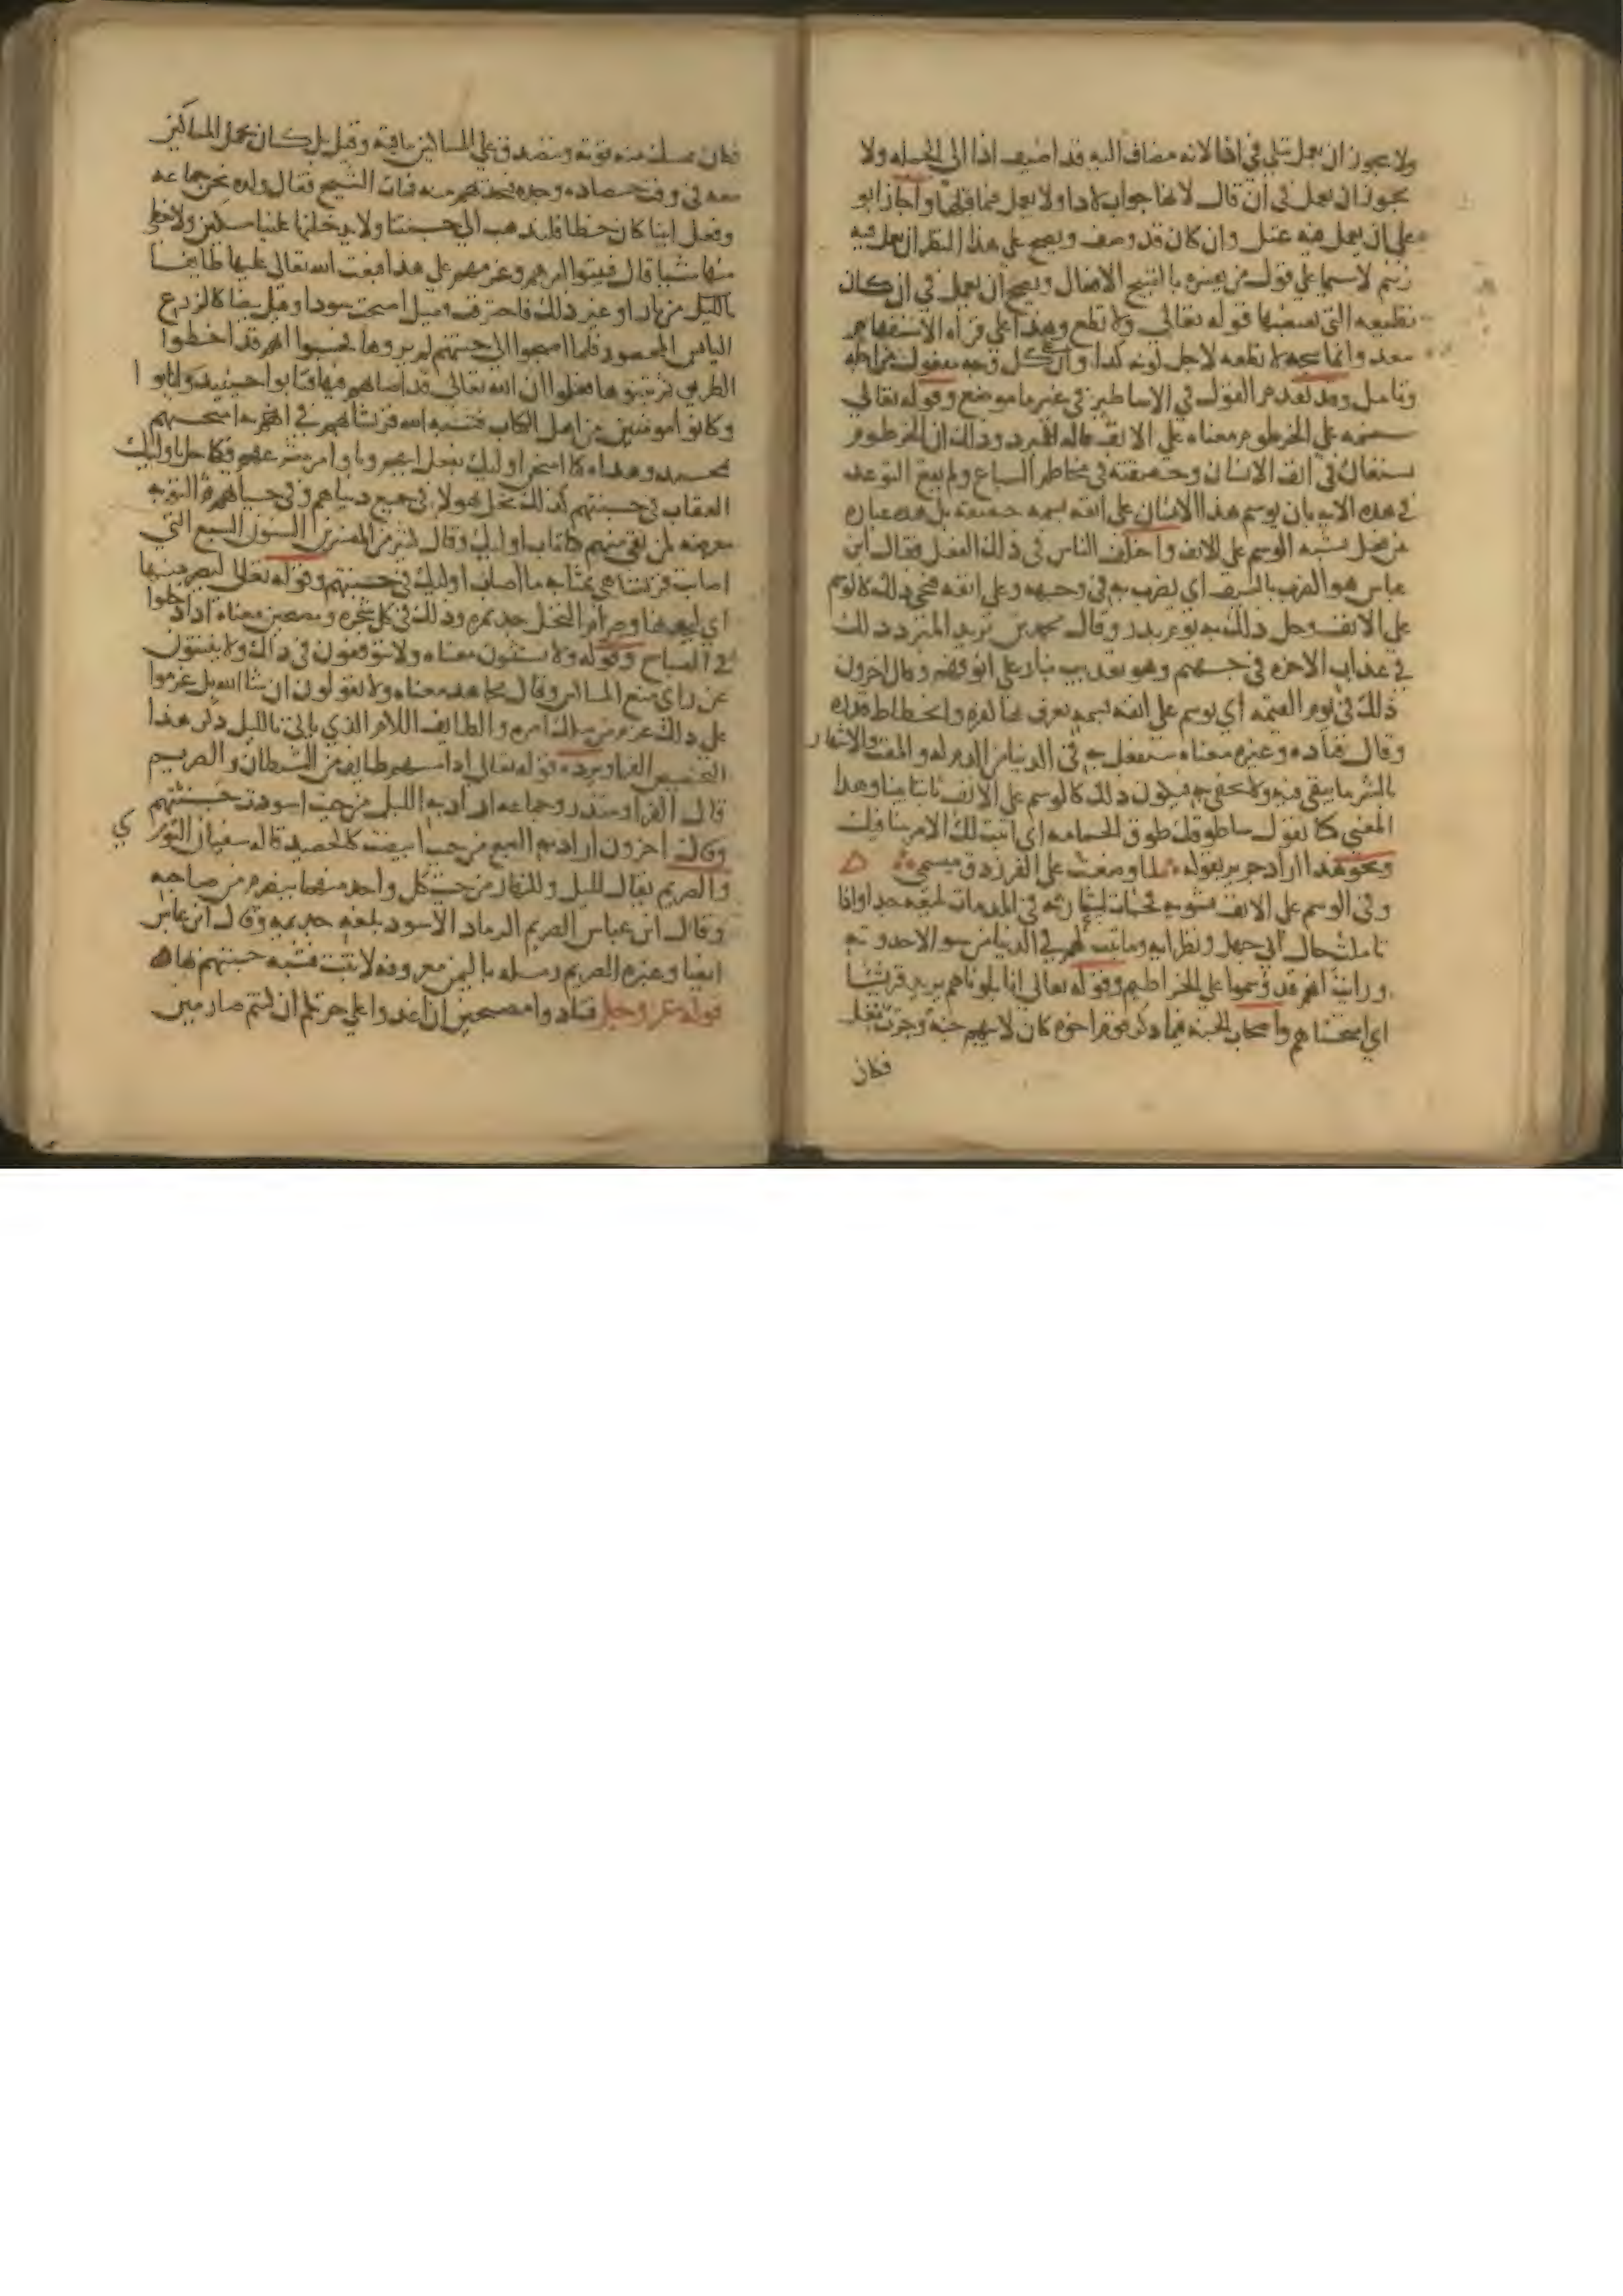 ولا يجوز ان يعمل تتلى في اذا لانه مضاف اليه قد اضيف اذا الى الجمله ولا
يجوز ان يعمل في ان قال لانها جواب لاذا ولا يعمل فيما قبلها واجاز ابو
على ان يعمل فيه عتل وان كان قد وصف ويصح على هذا النظر ان يعمل فيه
زنيم لاسيما على قول من يفسره بالقبيح الافعال ويصح ان يعمل في ان كان
تطيعه التي يقتضيها قوله تعالى ولا تطع وهذا على قراه الاستفهام
يبعد وانما يتجه لا تطعه لاجل كونه كذا وان كل وجه
وتامل وقد تقدم القول في الاساطير في غير ما موضع وقوله تعالى
سنسمه على الخرطوم معناه على الانف قاله المبرد وذلك ان الخرطوم
يستعار في انف الانسان وحقيقته في مخاطم السباع ولم يقع التوعد
في هذه الايه بان يوسم هذا الانسان على انفه بسمه حقيقه بل هذه عباره
عن فعل يشبه الوسم على الانف واختلف الناس في ذلك الفعل فقال ابن
عباس هو الضرب بالسيف اي يضرب به في وجهه وعلى انفه فيجي ذلك كالوسم
على الانف وحل ذلك به يوم بدر وقال محمد بن يزيد المبرد ذلك
في عذاب الاخره في جهنم وهو تعذيب بنار على انوفهم وقال اخرون
ذلك في يوم القيمه اي يوسم على انفه بسمه يعرف بها كفره وانحطاط قدره
وقال قتاده وغيره معناه سنفعل به في الدنيا من الذم له والمقت والاشهار
بالشر ما يبقى فيه ولا يخفى به فيكون ذلك كالوسم على الانف ثابتا بينا وهذا
المعنى كما تقول ساطوقك طوق الحمامه اي اثبت لك الامر بينا فيك
ونحو هذا اراد جرير بقوله لما وضعت على الفرزدق ميسمي
وفي الوسم على الانف تشويه فجات استعارته في المذمات بليغه جدا واذا
تاملت حال ابي جهل ونظرايه وما ثبت لهم في الدنيا من سو الاحدوثه
ورايت انهم قد وسموا على الخراطيم وقوله تعالى انا بلوناهم يريد قريشا
اي امتحناهم واصحاب الجنه فيما ذكر قوم اخوه كان لابيهم جنه وحرث مغل
فكان
فكان يمسك منه قوته ويتصدق على المساكين بباقيه وقيل بل كان يحمل المساكين
معه في وقت حصاده وجده فيجديهم منه فمات الشيخ فقال ولده نحن جماعه
وفعل ابينا كان خطا فلنذهب الى جنتنا ولا يدخلنها علينا مسكين ولا نعطي
منها شيا قال فبيتوا امرهم وعزمهم على هذا فبعث الله تعالى عليها طايفا
بالليل من نار او غير ذلك فاحترقت وقيل اصبحت سودا وقيل بيضا كالزرع
اليابس المحصود فلما اصبحوا الى جنتهم لم يروها فحسبوا انهم قد اخطوا
الطريق ثم تبينوها فعلموا ان الله تعالى قد اصابهم فيها فتابوا حينيذ وانابوا
وكانوا مومنين من اهل الكتاب فشبه الله قريشا بهم في انهم امتحنهم
بمحمد وهداه كما امتحن اوليك بفعل ابيهم وباوامر شرعهم فكما حل باوليك
العقاب في جنتهم كذلك يحل بهولا في جميع دنياهم وفي حياتهم ثم التوبه
معرضه لمن بقي منهم كما تاب اوليك وقال كثير من المفسرين السنون السبع التي
اصابت قريشا هي بمثابه ما اصاب اوليك في جنتهم وقوله تعالى ليصرمنها
اي ليجدنها وصرام النخل جد ثمره وذلك في كل شجره ومصبحين معناه اذا دخلوا
في الصباح وقوله ولا يستثنون معناه ولا يتوقفون في ذلك ولا ينثنون
عن راي منع المساكين وقال مجاهد معناه ولا يقولون ان شا الله بل عزموا
على ذلك عزم من يملك امره والطايف الامر الذي ياتي بالليل ذكر هذا
التخصيص الفرا ويرده قوله تعالى اذا مسهم طايف من الشيطان والصريم
قال الفرا ومنذر وجماعه اراد به الليل من حيث اسودت جنتهم
وقال اخرون اراد به الصبح من حيث ابيضت كالحصيد قاله سفيان الثوري
والصريم يقال لليل وللنهار من حيث كل واحد منهما ينصرم من صاحبه
وقال ابن عباس الصريم الرماد الاسود بلغه خزيمه وقال ابن عباس
ايضا وغيره الصريم رمله باليمن معروفه لا تنبت فشبه جنتهم بها
قوله عز وجل فتنادوا مصبحين ان اغدوا على حرثكم ان كنتم صارمين